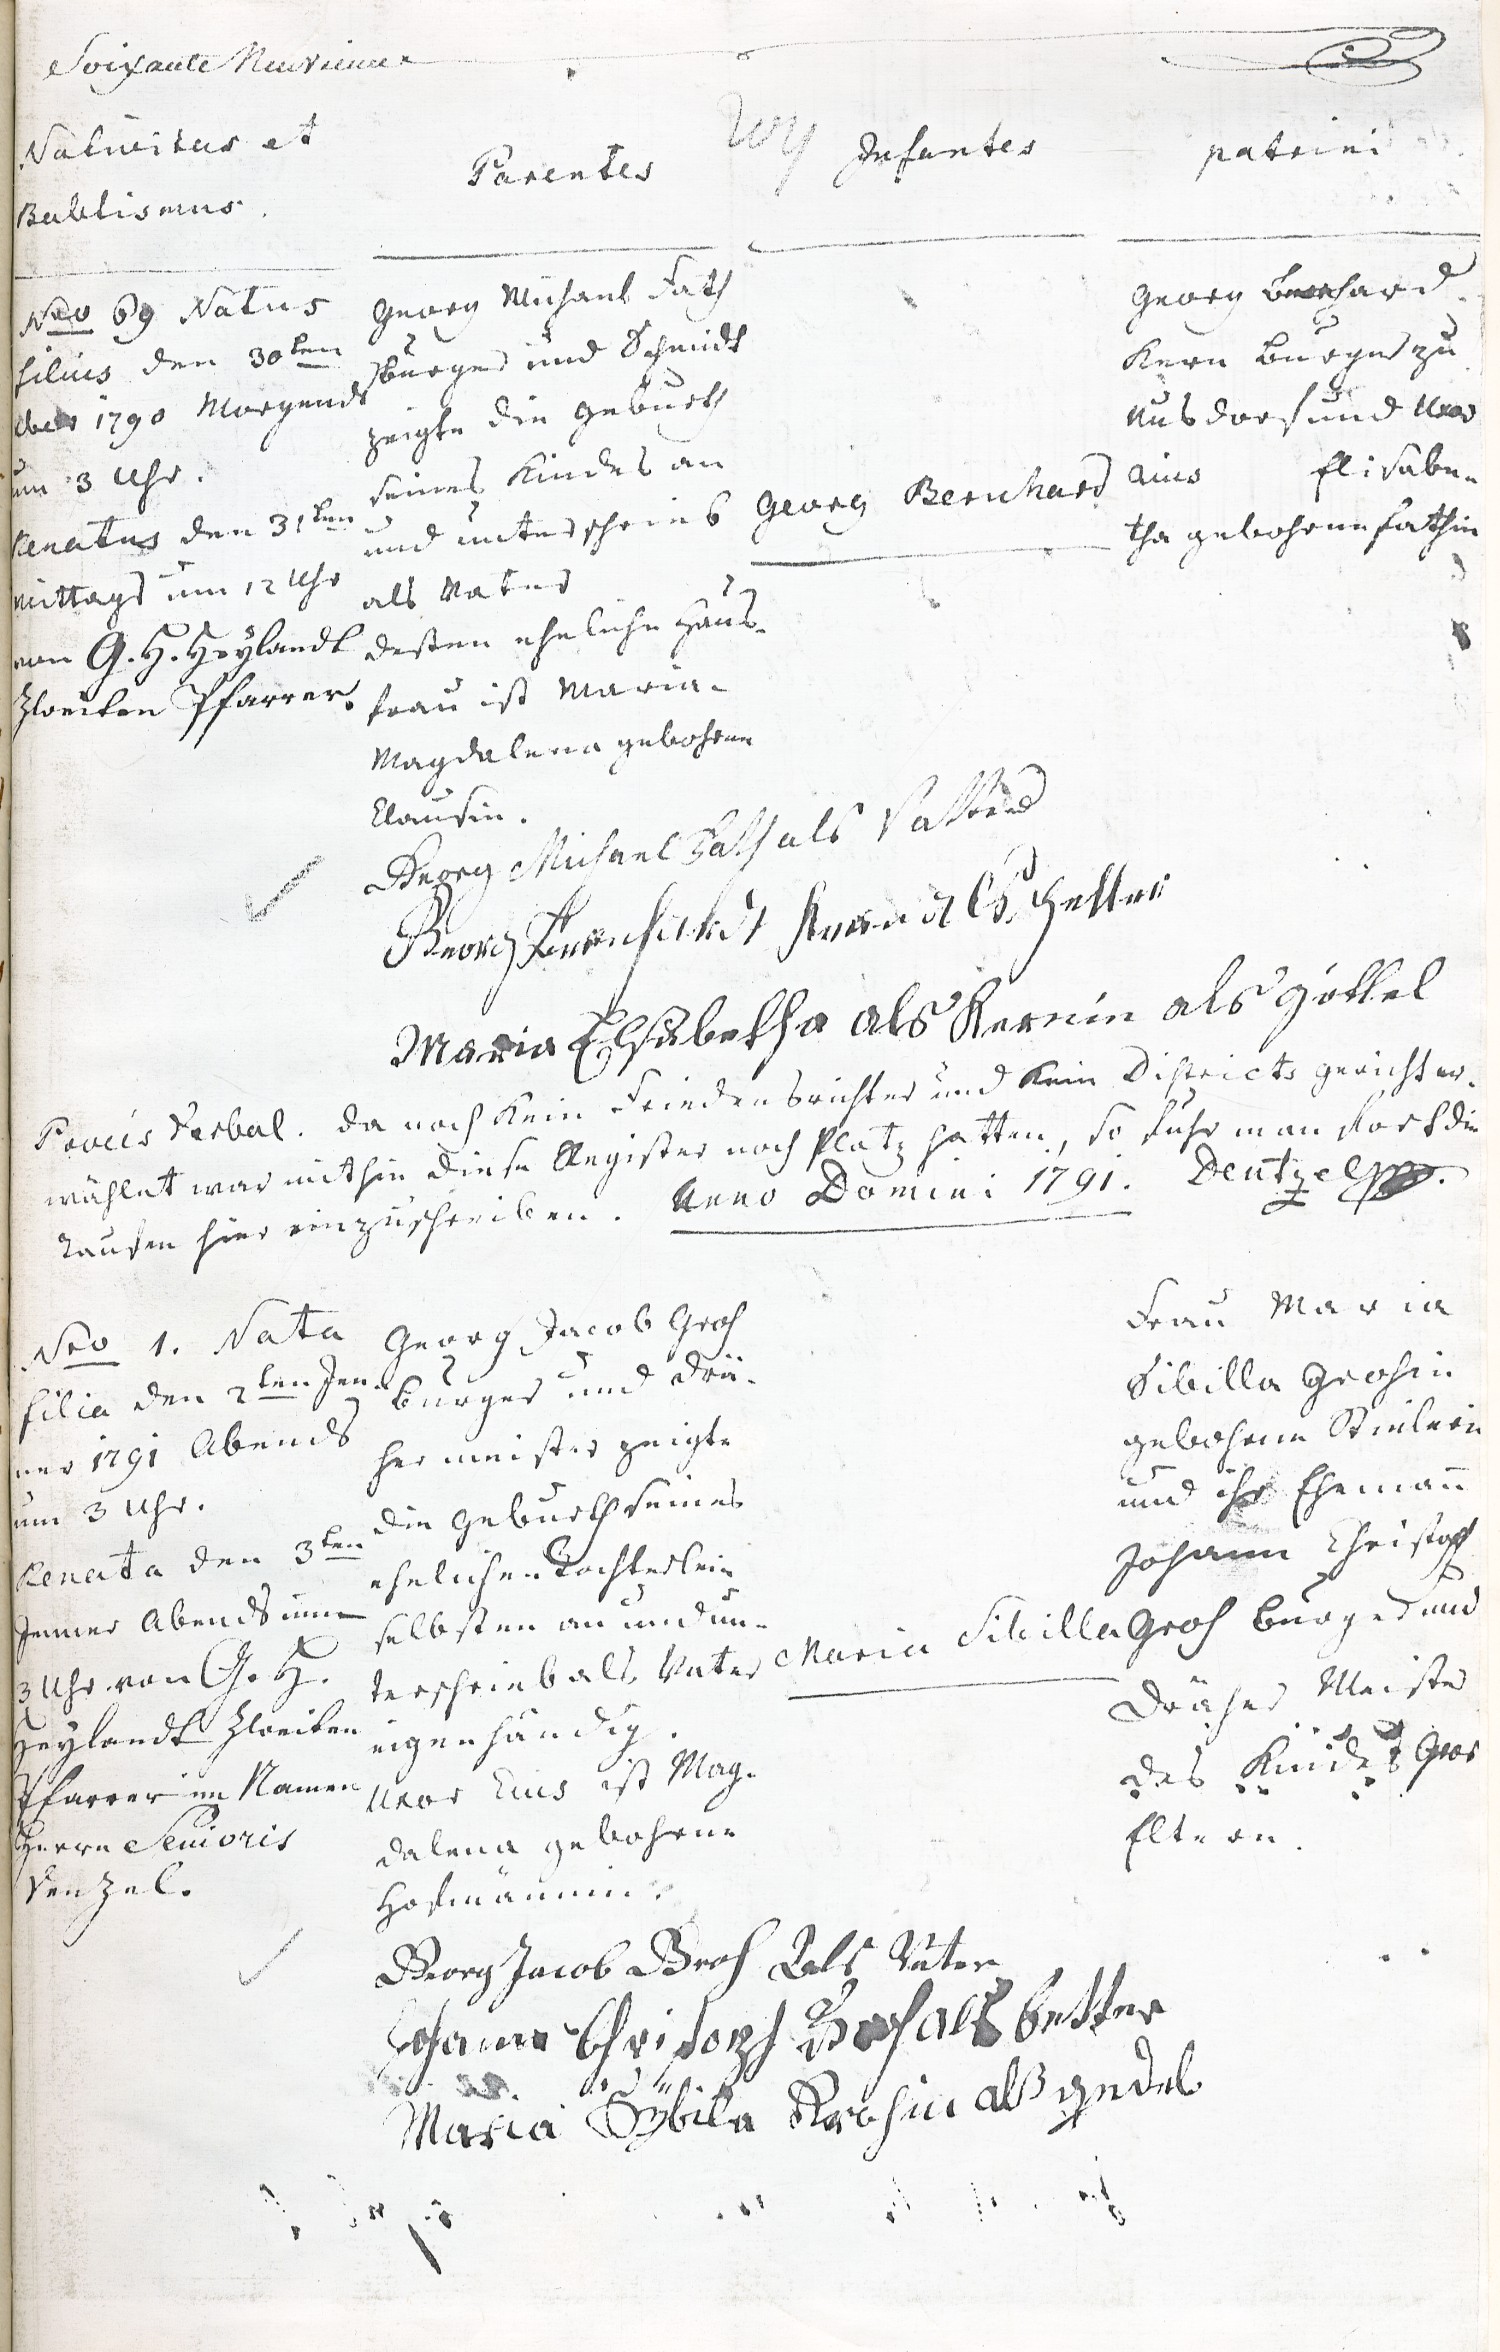 Soixante Neuvieme
Nativitas et
Babtismus.
Parentes
Infantes
patrini
Nro 69 Natus
filius den 30ten
1790 Morgends
um 3 Uhr.
Renatus den 31ten
mittags um 12 Uhr
von G. H. Heylandt
Zweiten Pfarrer.
Georg Michael Fath
burger und Schmidt
zeigte die Geburth
seines Kindes an
und unterschrieb
als Vater
dessen eheliche Haus-
frau ist Maria-
Magdalena gebohrne
Clausin.
Georg Bernhard
Georg Bernhard
Kern burger zu
Nusdorf und Uxor
eius Elisabe-
tha gebohrne Fathin
Georg Michael Fath als Vatter
Georg Bernhardt Kern als Pfetter
Maria Elisabetha als Kernin als göttel
Procés Verbal. da noch kein Friedensrichter und kein Districts gericht er-
wählet war mithin diese Register noch Platz hatten, so fuhr man fort die
Taufen hier einzuschreiben. Anno Domini 1791. Dentzel
Nro 1. Nata
filia den 2ten Jen-
ner 1791 Abends
um 3 Uhr.
Renata den 3ten
Jenner Abends um
3 Uhr von G. H.
Heylandt Zweiten
Pfarrer im Namen
Herrn Senioris
Denzel.
Georg Jacob Groh
burger und Drä-
hermeister zeigte
die Geburth seines
ehelichen Töchterlein
selbsten an und un-
terschrieb als Vater
eigenhändig.
Uxor Eius ist Mag-
dalena gebohrne
Hofmännin.
Maria Sibilla
Frau Maria
Sibilla Grohin
gebohrne
und ihr Ehemann
Johann Christoph
Groh burger und
Dräher Meister
des Kindes Gros
Eltern.
Georg Jacob Groh Als Vater
Johann Christoph Groh als Petter
Maria Sÿbila Krohin alß gedel